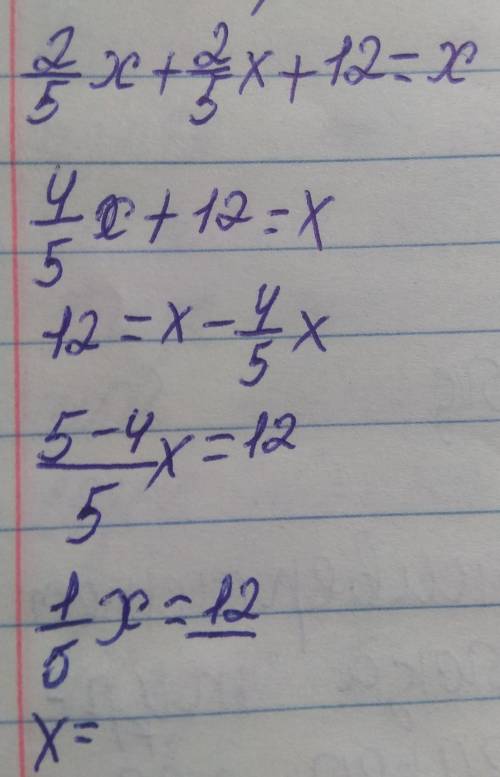 2/5 x + 2/5 x + 12 = x
4/5 x + 12 = x
12 = x - 4/5 x
5-4/5 x = 12
1/5 x = 12
x =